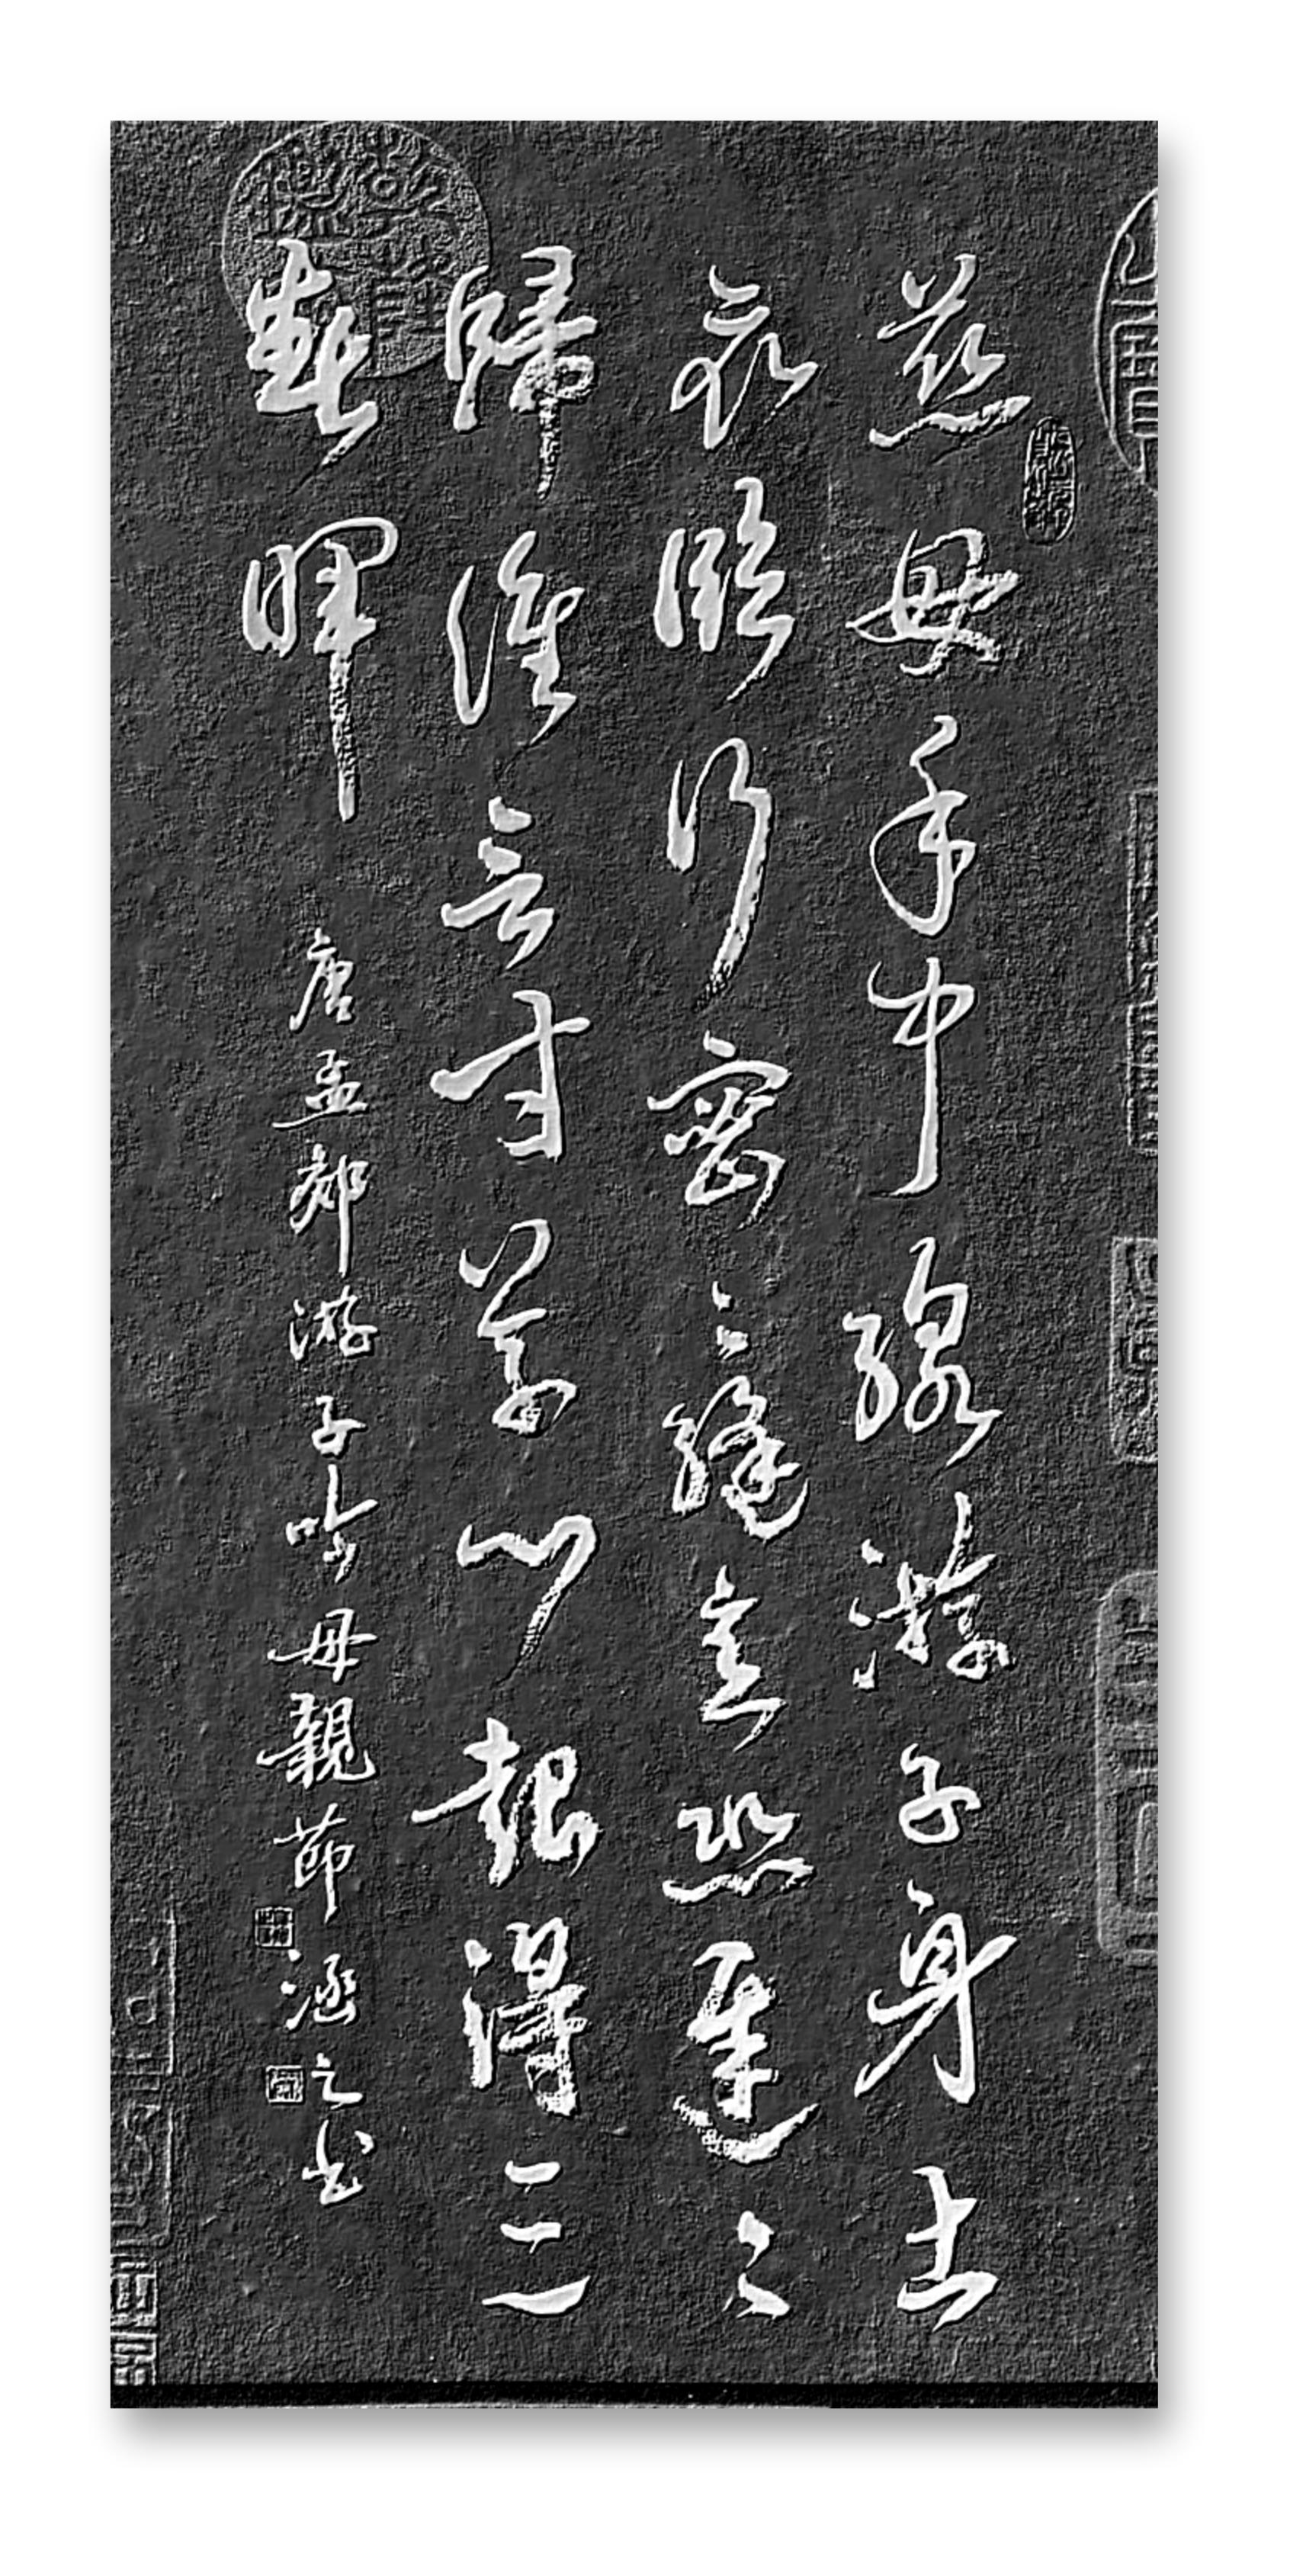 慈母手中線游子身上
衣臨行密〻縫意恐遲〻
歸誰言寸草心報得三
春暉
唐孟郊游子吟母親節涵之书